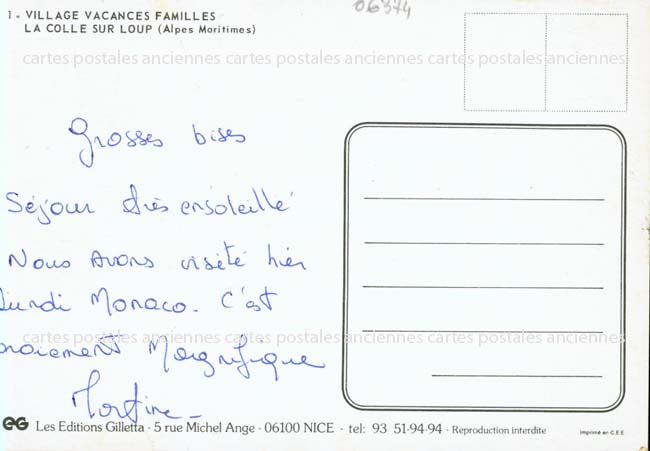 06374
1 - VILLAGE VACANCES FAMILLES
LA COLLE SUR LOUP (Alpes Maritimes)
cartes postales anciennes cartes postales anciennes cartes postales anciennes
Grosses bises
Séjour très ensoleillé
Nous Avons visité hier
Lundi Monaco. C'est
vraiement Magnifique
cartes postales anciennes cartes postales anciennes cartes postales anciennes
Martine -
EG Les Editions Gilletta - 5 rue Michel Ange - 06100 NICE - tel: 93 51-94-94 - Reproduction interdite
Imprimé en C.E.E